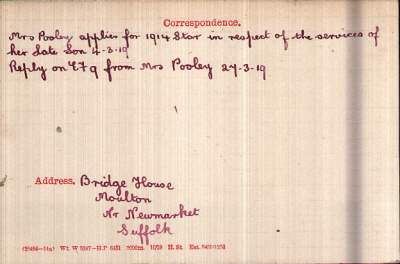 Correspondence.
Mrs Pooley applies for 1914 Star in respect of the services of
her late Son 4-3-19
Reply on E79 from Mrs Pooley 27-3-19
Address. Bridge House
Moulton
Nr Newmarket
Suffolk
Wt W 5347—H.P 2000m 10/19 H. St